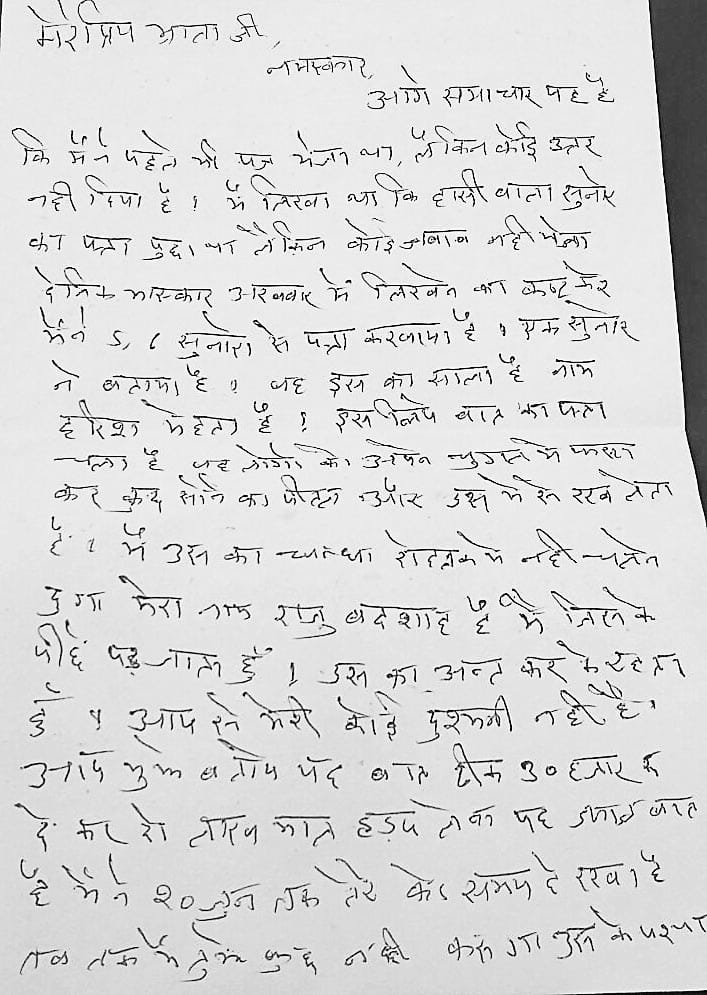 मेरे प्रिय भ्राता जी,
नमस्कार,
आगे समाचार यह है
कि मैंने पहले भी पत्र भेजा था, लेकिन कोई उत्तर
नही दिया है। मैं लिखा था कि हासी वाला सुनार
का पता पुछा था लेकिन कोई जवाब नही भेजा
देनिक भास्कार अखबार में लिखने का कष्ट करे
मैंने 5, 6 सुनारो से पता करवाया है। एक सुनार
ने बताया है। वह इस का साला है नाम
हरिश मेहता है। इस लिये बात का पता
चला है यह लोगो को अपने चुगल मे फसा
कर कुछ सोने का पीतल और उस मे से रख लेता
है। मैं उस का धन्धा रोहतक मे नही चलने
दुगा मेरा नाम राजु बदशाह है मैं जिस के
पीछे पड़ जाता हुँ। उस का अन्त कर के रहता
हुँ। आप से मेरी कोई दुश्मनी नही है।
आप मुझे बताये यह बात ठीक 30 हजार रू
दे कर दो लाख माल हड़प लेना यह बात
है मैंने 20 जुन तक तेरे को समय दे रखा है
तब तक मैं तुझे कुछ नही करू गा उस के पश्चा